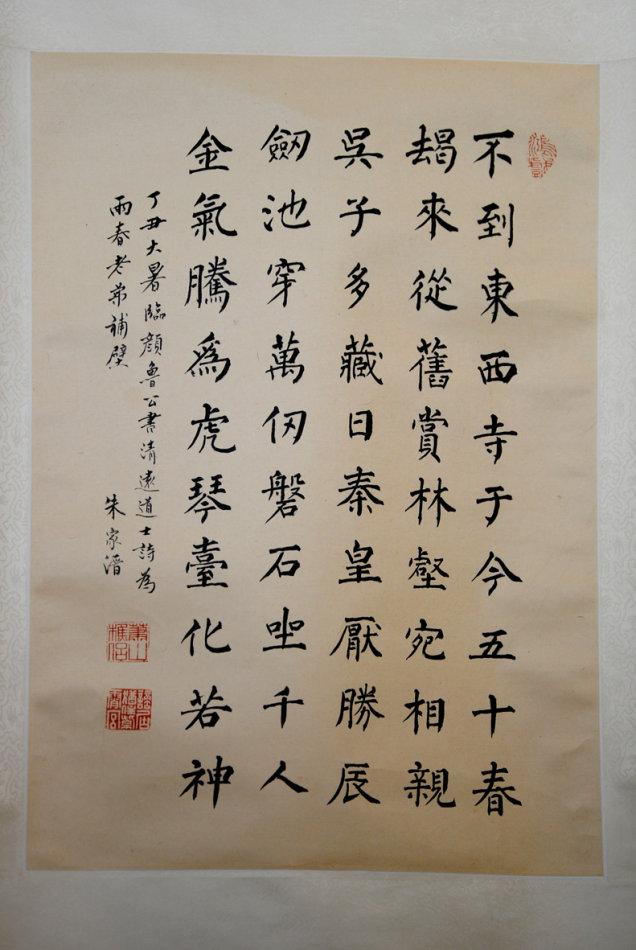 不到東西寺于今五十春
朅來從舊賞林壑宛相親
吳子多藏日秦皇厭勝辰
劒池穿萬仞磐石坐千人
金氣騰爲虎琴臺化若神
丁丑大暑臨顏魯公書清遠道士詩為
雨春老弟補壁
朱家溍